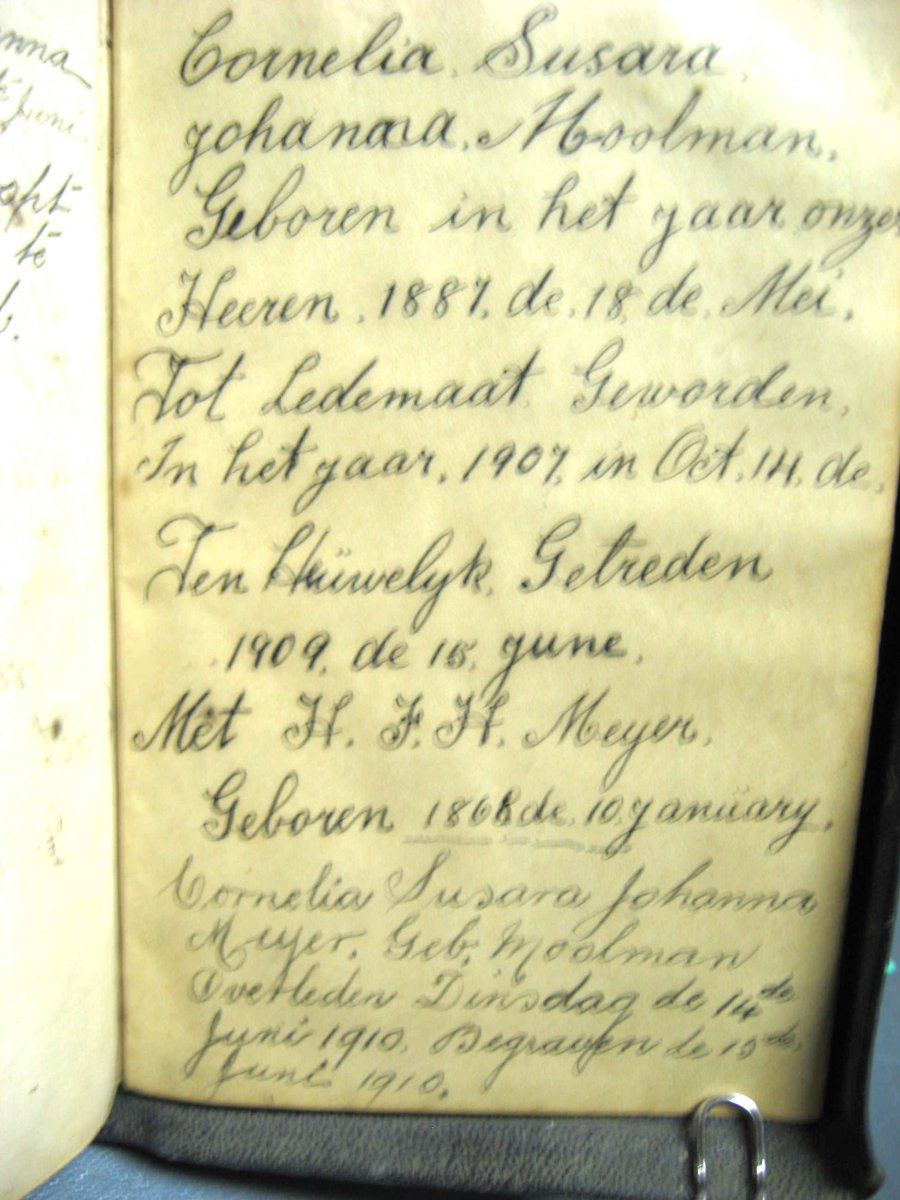 nna
Juni
te
Cornelia. Susara
Johanna. Moolman.
Geboren in het jaar onzer
Heeren. 1887. de. 18. de. Mei.
Tot Ledemaat Geworden.
In het jaar. 1907. in Oct. 14. de.
Ten Hüwelyk. Getreden
1909. de 15. june.
Met H. F. H. Meyer.
Geboren 1868 de. 10. janüary.
Cornelia Susara Johanna
Meyer. Geb. Moolman
Overleden Dinsdag de 14de
Juni 1910. Begraven de 15de
Juni 1910.